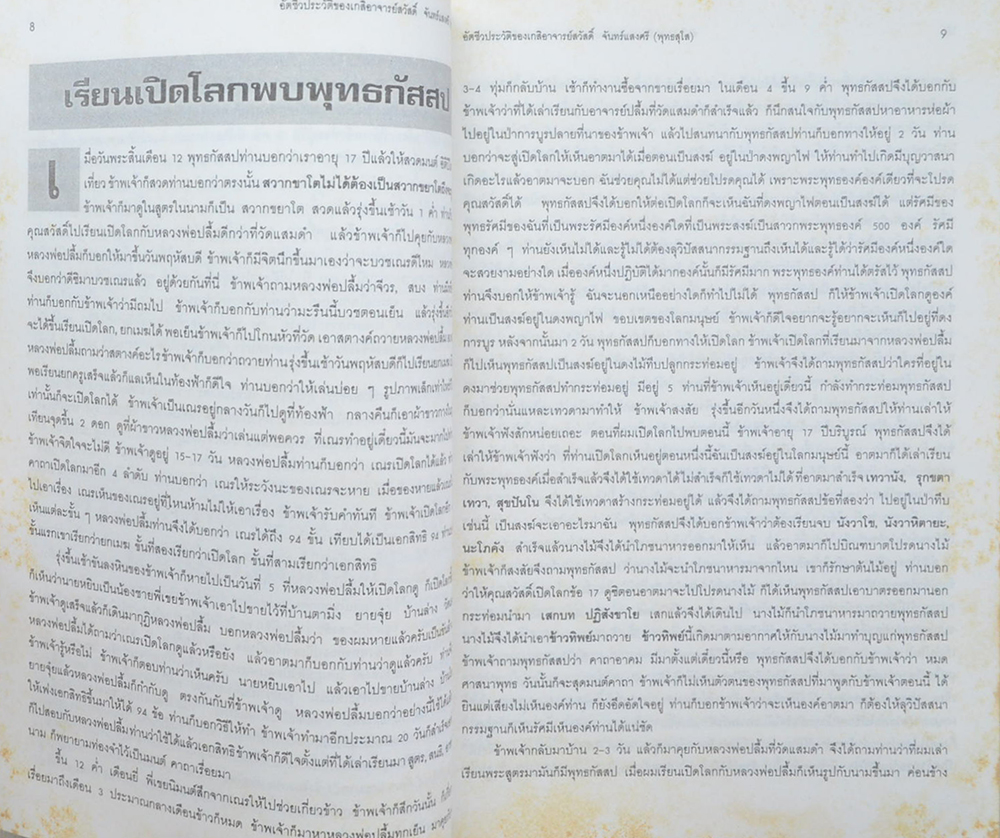 8
อัตชีวประวัติของเกสิอาจารย์สวัสดิ์ จันทร์แสงศรี
เรียนเปิดโลกพบพุทธกัสสป
เมื่อวันพระสิ้นเดือน 12 พุทธกัสสปท่านบอกว่าเราอายุ 17 ปีแล้วให้สวดมนต์
เที่ยว ข้าพเจ้าก็สวดท่านบอกว่าตรงนั้น สวากขาโตไม่ได้ต้องเป็นสวากขยาโต
ข้าพเจ้าก็มาดูในสูตรในนามก็เป็น สวากขยาโต สวดแล้วรุ่งขึ้นเช้าวัน 1 ค่ำ
คุณสวัสดิ์ไปเรียนเปิดโลกกับหลวงพ่อปลื้มดีกว่าที่วัดแสมดำ แล้วข้าพเจ้าก็ไปคุยกับ
หลวงพ่อปลื้มก็บอกให้มาขึ้นวันพฤหัสบดี ข้าพเจ้าก็มีจิตนึกขึ้นมาเองว่าจะบวชเณรดีไหม
จึงบอกว่าดีซิมาบวชเณรแล้ว อยู่ด้วยกันที่นี่ ข้าพเจ้าถามหลวงพ่อปลื้มว่าจีวร, สบง
ท่านก็บอกกับข้าพเจ้าว่ามีถมไป ข้าพเจ้าก็บอกกับท่านว่ามะรืนนี้บวชตอนเย็น แล้วรุ่งขึ้น
จะได้ขึ้นเรียนเปิดโลก, ยกเมฆได้ พอเย็นข้าพเจ้าก็ไปโกนหัวที่วัด เอาสตางค์ถวายหลวงพ่อปลื้ม
หลวงพ่อปลื้มถามว่าสตางค์อะไรข้าพเจ้าก็บอกว่าถวายท่านรุ่งขึ้นเช้าวันพฤหัสบดีก็ไปเรียนยกเมฆ
พอเรียนยกครูเสร็จแล้วก็แลเห็นในท้องฟ้าก็ดีใจ ท่านบอกว่าให้เล่นบ่อย ๆ รูปภาพเล็กเท่า
เท่านั้นก็จะเปิดโลกได้ ข้าพเจ้าเป็นเณรอยู่กลางวันก็ไปดูที่ท้องฟ้า กลางคืนก็เอาผ้าขาว
เทียนจุดขึ้น 2 ดอก ดูที่ผ้าขาวหลวงพ่อปลื้มว่าเล่นแต่พอควร ที่เณรทำอยู่เดี๋ยวนี้มันจะมาก
ข้าพเจ้าจิตใจจะไม่ดี ข้าพเจ้าดูอยู่ 15-17 วัน หลวงพ่อปลื้มท่านก็บอกว่า เณรเปิดโลกได้แล้ว
คาถาเปิดโลกมาอีก 4 ลำดับ ท่านบอกว่า เณรให้ระวังนะของเณรจะหาย เมื่อของหายแล้ว
ไปเอาเรื่อง เณรเห็นของเณรอยู่ที่ไหนห้ามไม่ให้เอาเรื่อง ข้าพเจ้ารับคำทันที ข้าพเจ้าเปิดโลก
เห็นแต่ละชั้น ๆ หลวงพ่อปลื้มท่านจึงได้บอกว่า เณรได้ถึง 94 ชั้น เทียบได้เป็นเอกสิทธิ 94
ขั้นแรกเขาเรียกว่ายกเมฆ ขั้นที่สองเรียกว่าเปิดโลก ขั้นที่สามเรียกว่าเอกสิทธิ
รุ่งขึ้นเช้าขันลงหินของข้าพเจ้าก็หายไปเป็นวันที่ 5 ที่หลวงพ่อปลื้มให้เปิดโลกดู ก็เปิดโลก
ก็เห็นว่านายหยิบเป็นน้องชายพี่เขยข้าพเจ้าเอาไปขายไว้ที่บ้านตามิ่ง ยายจุ้ย บ้านล่าง
ข้าพเจ้าดูเสร็จแล้วก็เดินมากุฏิหลวงพ่อปลื้ม บอกหลวงพ่อปลื้มว่า ของผมหายแล้วครับ
หลวงพ่อปลื้มได้ถามว่าเณรเปิดโลกดูแล้วหรือยัง แล้วอาตมาก็บอกกับท่านว่าดูแล้วครับ
ข้าพเจ้ารู้หรือไม่ ข้าพเจ้าก็ตอบท่านว่าเห็นครับ นายหยิบเอาไป แล้วเอาไปขายบ้านล่าง
ยายจุ้ยแล้วหลวงพ่อปลื้มก็กำกับดู ตรงกันกับที่ข้าพเจ้าดู หลวงพ่อปลื้มบอกว่าอย่างนี้ใช้ได้
ให้เพ่งเอกสิทธิขึ้นมาให้ได้ 94 ข้อ ท่านก็บอกวิธีให้ทำ ข้าพเจ้าทำมาอีกประมาณ 20 วันก็สำเร็จ
ก็ไปสอบกับหลวงพ่อปลื้มท่านว่าใช้ได้แล้วเอกสิทธิข้าพเจ้าก็ดีใจตั้งแต่ที่ได้เล่าเรียนมา สูตร, สนธิ,
นาม ก็พยายามท่องจำไว้เป็นมนต์ คาถาเรื่อยมา
ขึ้น 12 ค่ำ เดือนยี่ พี่เขยนิมนต์สึกจากเณรให้ไปช่วยเกี่ยวข้าว ข้าพเจ้าก็สึกวันนั้น
เรื่อยมาถึงเดือน 3 ประมาณกลางเดือนข้าวก็หมด ข้าพเจ้าก็มาหาหลวงพ่อปลื้มทุกเย็น
อัตชีวประวัติของเกสิอาจารย์สวัสดิ์ จันทร์แสงศรี (พุทธสุโส)
9
3-4 ทุ่มก็กลับบ้าน เช้าก็ทำงานซื้อจากขายเรื่อยมา ในเดือน 4 ขึ้น 9 ค่ำ พุทธกัสสปจึงได้บอกกับ
ข้าพเจ้าว่าที่ได้เล่าเรียนกับอาจารย์ปลื้มที่วัดแสมดำก็สำเร็จแล้ว ก็นึกสนใจกับพุทธกัสสปหาอาหารห่อผ้า
ไปอยู่ในป่าการบูรปลายที่นาของข้าพเจ้า แล้วไปสนทนากับพุทธกัสสปท่านก็บอกทางให้อยู่ 2 วัน ท่าน
บอกว่าจะสู่เปิดโลกให้เห็นอาตมาได้เมื่อตอนเป็นสงฆ์ อยู่ในป่าดงพญาไฟ ให้ท่านทำไปเกิดมีบุญวาสนา
เกิดอะไรแล้วอาตมาจะบอก ฉันช่วยคุณไม่ได้แต่ช่วยโปรดคุณได้ เพราะพระพุทธองค์องค์เดียวที่จะโปรด
คุณสวัสดิ์ได้ พุทธกัสสปจึงได้บอกให้ต่อไปเปิดโลกก็จะเห็นฉันที่ดงพญาไฟตอนเป็นสงฆ์ได้ แต่รัศมีของ
พุทธรัศมีของฉันที่เป็นพระรัศมีองค์หนึ่งองค์ใดที่เป็นพระสงฆ์เป็นสาวกพระพุทธองค์ 500 องค์ รัศมี
ทุกองค์ ๆ ท่านยังเห็นไม่ได้และรู้ไม่ได้ต้องลุวิปัสสนากรรมฐานถึงเห็นได้และรู้ได้ว่ารัศมีองค์หนึ่งองค์ใด
จะสวยงามอย่างใด เมื่อองค์หนึ่งปฏิบัติได้มากองค์นั้นก็มีรัศมีมาก พระพุทธองค์ท่านได้ตรัสไว้ พุทธกัสสป
ท่านจึงบอกให้ข้าพเจ้ารู้ ฉันจะนอกเหนืออย่างใดก็ทำไปไม่ได้ พุทธกัสสป ก็ให้ข้าพเจ้าเปิดโลกดูองค์
ท่านเป็นสงฆ์อยู่ในดงพญาไฟ ขอบเขตของโลกมนุษย์ ข้าพเจ้าก็ดีใจอยากจะรู้อยากจะเห็นก็ไปอยู่ที่ดง
การบูร หลังจากนั้นมา 2 วัน พุทธกัสสปก็บอกทางให้เปิดโลก ข้าพเจ้าเปิดโลกที่เรียนมาจากหลวงพ่อปลื้ม
ก็ไปเห็นพุทธกัสสปเป็นสงฆ์อยู่ในดงไม้ทึบปลูกกระท่อมอยู่ ข้าพเจ้าจึงได้ถามพุทธกัสสปว่าใครที่อยู่ใน
ดงมาช่วยพุทธกัสสปทำกระท่อมอยู่ มีอยู่ 5 ท่านที่ข้าพเจ้าเห็นอยู่เดี๋ยวนี้ กำลังทำกระท่อมพุทธกัสสป
ก็บอกว่านั่นแหละเทวดามาทำให้ ข้าพเจ้าสงสัย รุ่งขึ้นอีกวันหนึ่งจึงได้ถามพุทธกัสสปให้ท่านเล่าให้
ข้าพเจ้าฟังสักหน่อยเถอะ ตอนที่ผมเปิดโลกไปพบตอนนี้ ข้าพเจ้าอายุ 17 ปีบริบูรณ์ พุทธกัสสปจึงได้
เล่าให้ข้าพเจ้าฟังว่า ที่ท่านเปิดโลกเห็นอยู่ตอนหนึ่งนี้ฉันเป็นสงฆ์อยู่ในโลกมนุษย์นี้ อาตมาก็ได้เล่าเรียน
กับพระพุทธองค์เมื่อสำเร็จแล้วจึงได้ใช้เทวดาได้ ไม่สำเร็จก็ใช้เทวดาไม่ได้ที่อาตมาสำเร็จ เทวานัง, รุกขตา
เทวา, สุขปันโน จึงได้ใช้เทวดาสร้างกระท่อมอยู่ได้ แล้วจึงได้ถามพุทธกัสสปข้อที่สองว่า ไปอยู่ในป่าทึบ
เช่นนี้ เป็นสงฆ์จะเอาอะไรมาฉัน พุทธกัสสปจึงได้บอกข้าพเจ้าว่าต้องเรียนจบ นังวาโช, นังวาหิตายะ,
นะโภคัง สำเร็จแล้วนางไม้จึงได้นำโภชนาหารออกมาให้เห็น แล้วอาตมาก็ไปบิณฑบาตโปรดนางไม้
ข้าพเจ้าก็สงสัยจึงถามพุทธกัสสป ว่านางไม้จะนำโภชนาหารมาจากไหน เขาก็รักษาต้นไม้อยู่ ท่านบอก
ว่าให้คุณสวัสดิ์เปิดโลกข้อ 17 ดูซิตอนอาตมาจะไปโปรดนางไม้ ก็ได้เห็นพุทธกัสสปเอาบาตรออกมานอก
กระท่อมนำมา เสกบท ปฏิสังขาโย เสกแล้วจึงได้เดินไป นางไม้ก็นำโภชนาหารมาถวายพุทธกัสสป
นางไม้จึงได้นำเอาข้าวทิพย์มาถวาย ข้าวทิพย์นี้เกิดมาตามอากาศให้กับนางไม้มาทำบุญแก่พุทธกัสสป
ข้าพเจ้าถามพุทธกัสสปว่า คาถาอาคม มีมาตั้งแต่เดี๋ยวนี้หรือ พุทธกัสสปจึงได้บอกกับข้าพเจ้าว่า หมด
ศาสนาพุทธ วันนั้นก็จะสุดมนต์คาถา ข้าพเจ้าก็ไม่เห็นตัวตนของพุทธกัสสปที่มาพูดกับข้าพเจ้าตอนนี้ ได้
ยินแต่เสียงไม่เห็นองค์ท่าน ก็ยังอึดอัดใจอยู่ ท่านก็บอกข้าพเจ้าว่าจะเห็นองค์อาตมา ก็ต้องให้ลุวิปัสสนา
กรรมฐานก็เห็นรัศมีเห็นองค์ท่านได้แน่ชัด
ข้าพเจ้ากลับมาบ้าน 2-3 วัน แล้วก็มาคุยกับหลวงพ่อปลื้มที่วัดแสมดำ จึงได้ถามท่านว่าที่ผมเล่า
เรียนพระสูตรมามันก็มีพุทธกัสสป เมื่อผมเรียนเปิดโลกกับหลวงพ่อปลื้มก็เห็นรูปกับนามขึ้นมา ค่อนข้าง